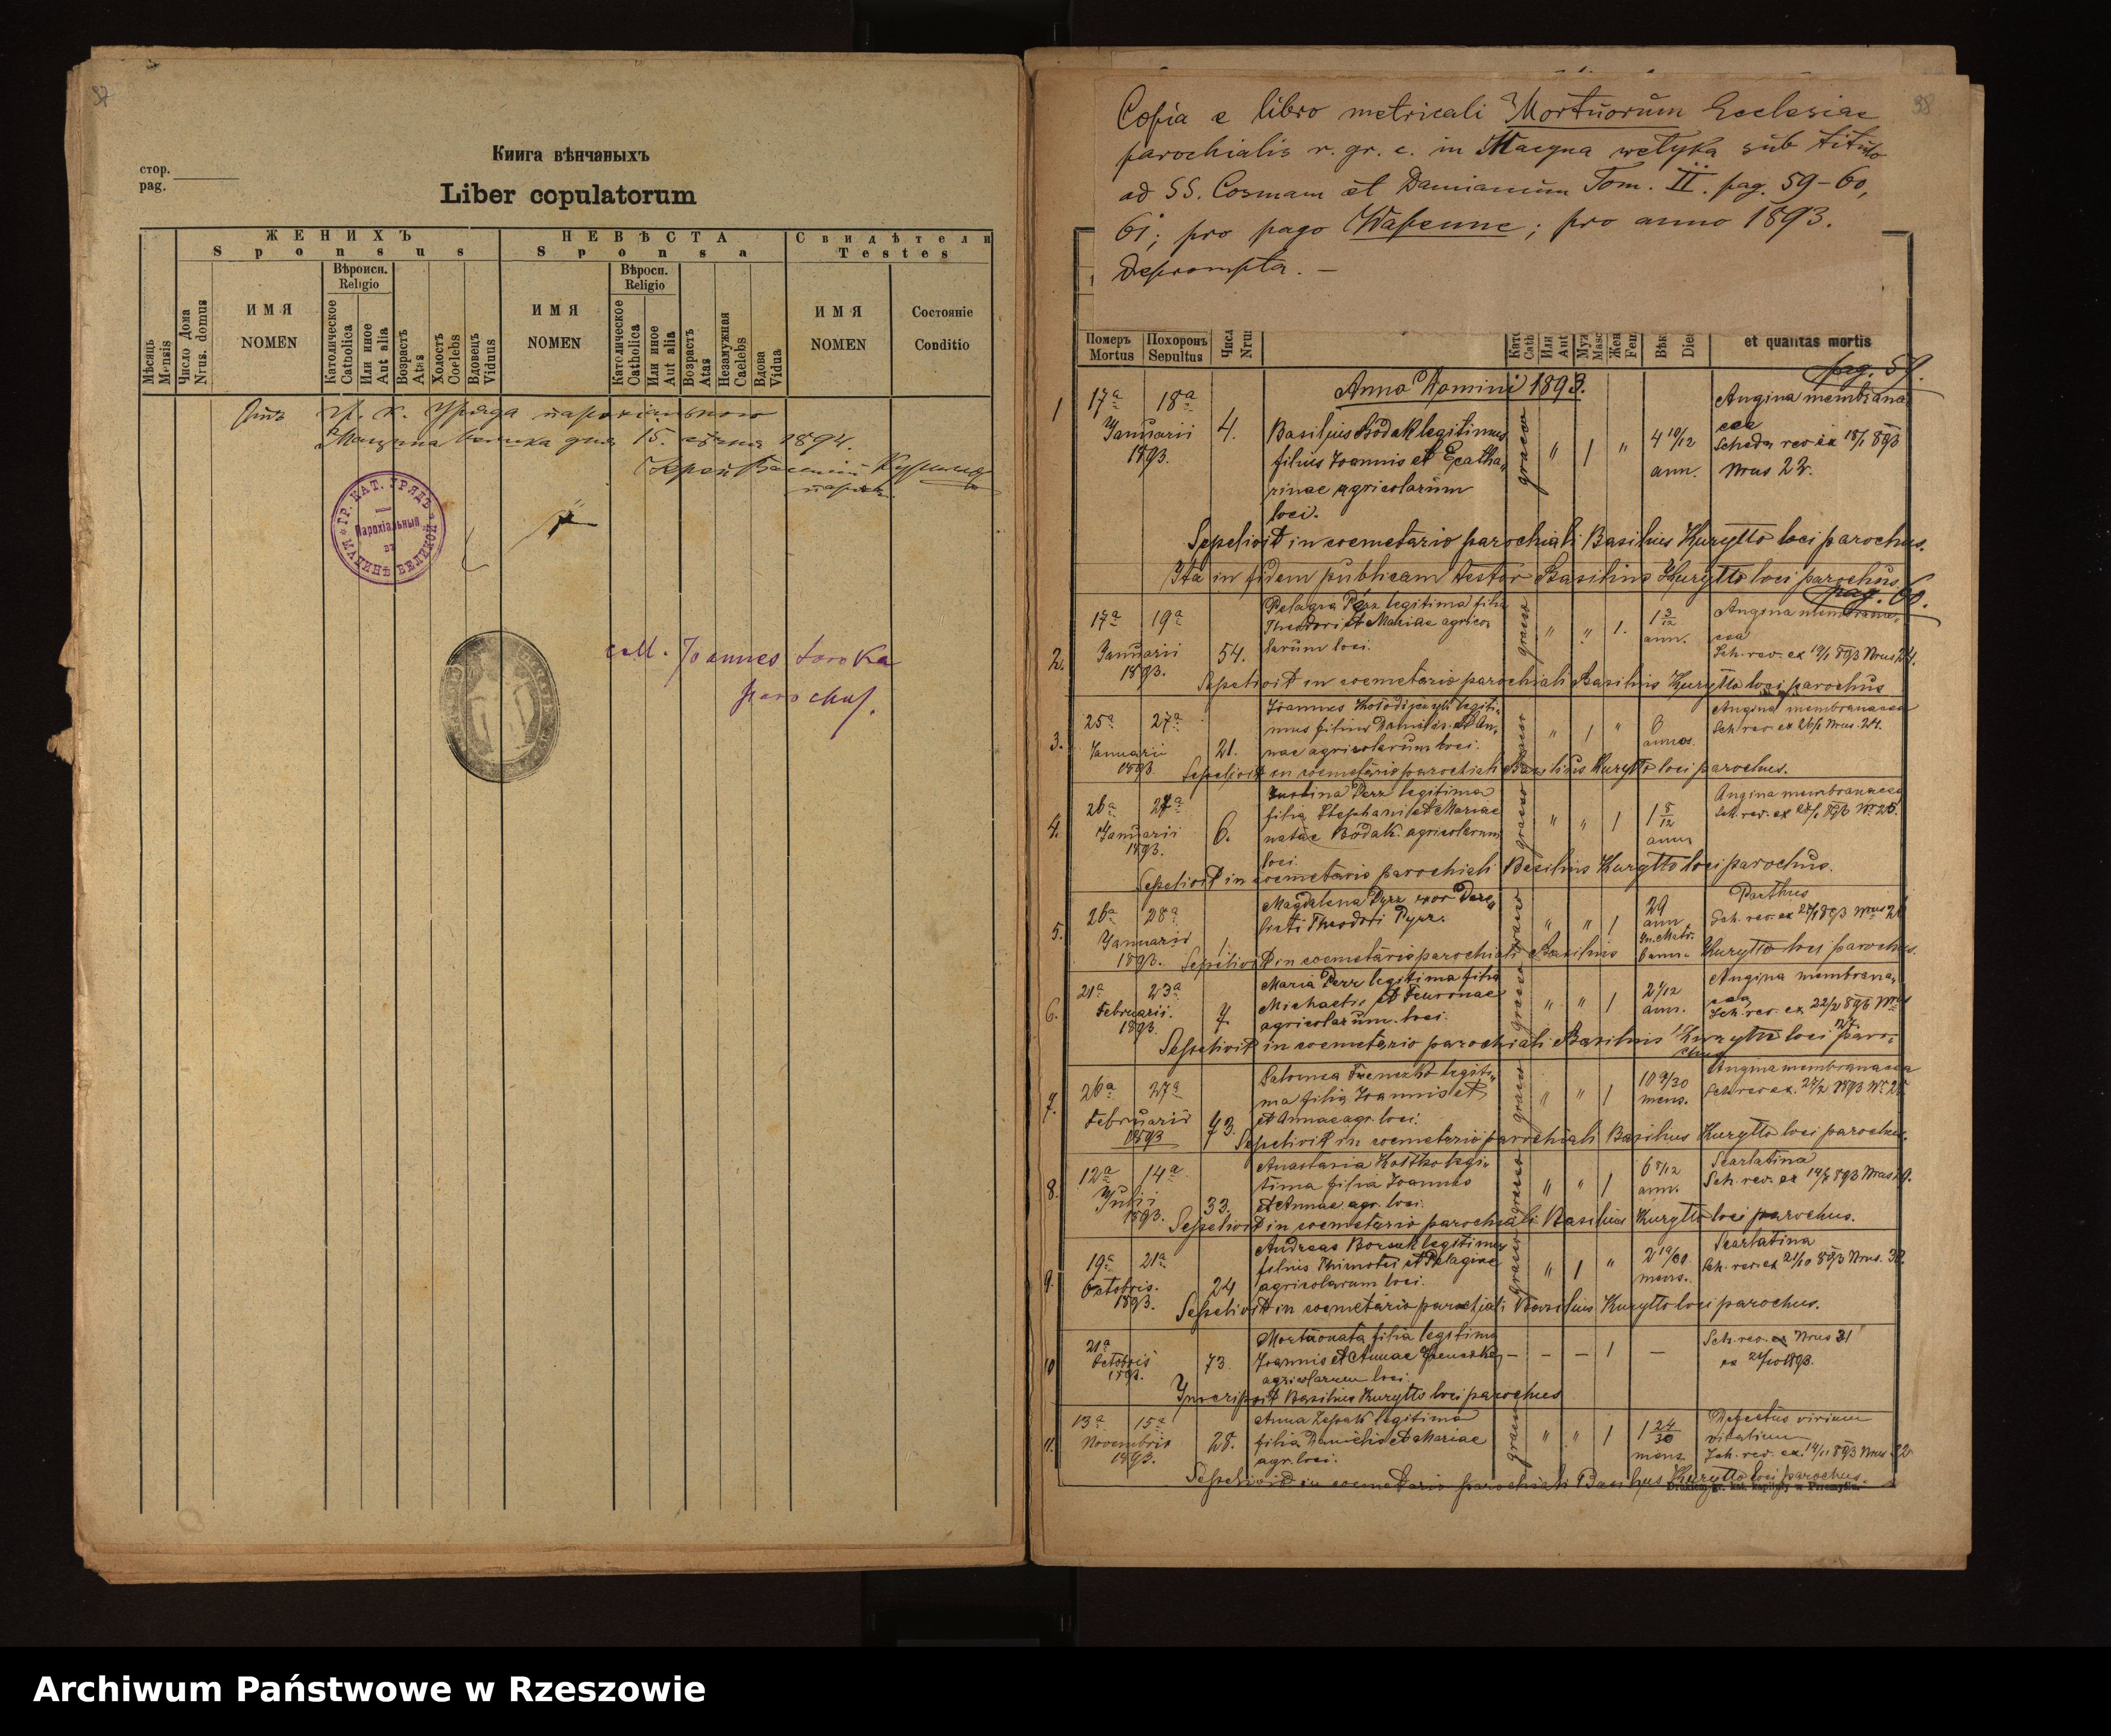 37
стор.
pag.
Книга вѣнчаныхъ
Liber copulatorum
Мѣсяць
Mensis
Число Дома
Nrus. domus
ЖЕНИХЪ
Sponsus
ИМЯ
NOMEN
Вѣроисп.
Religio
Католическое
Catholica
Или иное
Aut alia
Возрастъ
Ætas
Холостъ
Coelebs
Вдовецъ
Viduus
НЕВѢСТА
Sponsa
ИМЯ
NOMEN
Вѣросп.
Religio
Католическое
Catholica
Или иное
Aut alia
Возрастъ
Ætas
Незамужная
Caelebs
Вдова
Vidua
Свидѣтели
Testes
ИМЯ
NOMEN
Состояніе
Conditio
гр. к. Уряда парохіяльного
Мацина велика дня 15. 1894.
ГР. КАТ. УРЯДЪ
Парохіяльный
въ
МАЦИНѢ ВЕЛИКОЙ
coll. Joannes Soroka
parochus.
38
Copia e libro metricali Mortuorum Ecclesiae
parochialis r. gr. c. in Macyna welyka sub titulo
ad SS. Cosmam et Damianum Tom. II. pag. 59-60,
61; pro pago Wapenne; pro anno 1893.
Deprompta. —
Померъ
Mortus
Похоронъ
Sepultus
Числ
Nrus
Като
Cath
Или
Aut
Муж
Masc
Жен
Fem
Вѣк
Dies
et qualitas mortis
pag. 59.
Anno Domini 1893.
1
17a 18a
Januarii
1893.
4.
Basilius Bodak legitimus
filius Joannis et Ecatha-
rinae agricolarum
loci.
graeco
" 1 "
4 10/12
ann.
Angina membrana-
cea
Scheda rev. ex 18/1 893
Nrus 23.
Sepelivit in coemetario parochiali Basilius Kuryłło loci parochus.
Ita in fidem publicam testor Basilius Kuryłło loci parochus
pag. 60.
2.
17a 19a
Januarii
1893.
54.
Pelagia Perz legitima filia
Theodori et Mariae agrico-
larum loci.
graeco
" " 1.
ann.
Angina membrana-
cea
Sch. rev. ex 19/1 893 Nrus 24.
Sepelivit in coemetario parochiali Basilius Kuryłło loci parochus
3.
25a 27a
Januarii
1893.
21.
Joannes legiti-
mus filius Danielis et An-
nae agricolarum loci.
graeco
" 1 "
6
annos.
Angina membranacea
Sch rev ex 26/1 Nrus. 24.
Sepelivit in coemetario parochiali Basilius Kuryłło loci parochus.
4.
26a 27a
Januarii
1893.
6.
Justina Perz legitima
filia Stephani et Mariae
natae Bodak agricolarum
loci.
graeco
" " 1
1 5/12
ann
Angina membranacea
Sch. rev. ex 893 Nr. 25.
Sepelivit in coemetario parochiali Basilius Kuryłło loci parochus.
5.
26a 28a
Januarii
1893.
1.
Magdalena Pyrz uxor
Theodori Pyrz.
graeco
" " 1
29
ann
In Matr.
6 ann.
Parthus
Sch. rev. ex 27/1 893 Nrus 26
Sepelivit in coemetario parochiali Basilius Kuryłło loci parochus.
6.
21a 23a
Februarii.
1893.
7.
Maria Perz legitima filia
Michaelis et Feuronae
agricolarum loci.
graeco
" " 1
ann.
Angina membrana-
cea
Sch. rev. ex 22/2 893 Nrus
27.
Sepelivit in coemetario parochiali Basilius Kuryłło loci paro-
chus
7.
26a 27a
Februarii
1893
73.
Salomea legiti-
ma filia Joannis et
et Annae agr. loci.
graeco
" " 1
10 9/30
mens.
Angina membranacea
Sch rev ex. 27/2 893 Nr. 28
Sepelivit in coemetario parochiali Basilius Kuryłło loci parochus.
8.
12a 14a
Julii
1893.
33.
Anastasia legi-
tima filia Joannis
et Annae agr. loci.
graeco
" " 1
ann.
Scarlatina
Sch. rev. ex 14/7 893 Nrus 29.
Sepelivit in coemetario parochiali Basilius Kuryłło loci parochus.
9.
19a 21a
Octobris.
1893.
24
Andreas legitimus
filius Thimotei et Pelagiae
agricolarum loci.
graeco
" 1 "
2 19/30
mens.
Scarlatina
Sch. rev. ex 21/10 893 Nrus. 30.
Sepelivit in coemetario parochiali Basilius Kuryłło loci parochus.
10
21a
Octobris
1893.
73.
Mortuonata filia legitima
Joannis et Annae
agricolarum loci.
— — — 1 —
Sch. rev. ex Nrus 31
ex 21/10 1893.
Inscripsit Basilius Kuryłło loci parochus
11.
13a 15a
Novembris
1893.
28.
Anna legitima
filia Danielis et Mariae
agr. loci.
graeco
" " 1
1 24/30
mens.
Defectus virium
vitalium
Sch. rev. ex. 14/11 893 Nrus 32
Sepelivit in coemetario parochiali Basilius Kuryłło loci parochus.
Drukiem gr. kat. kapituły w Przemyślu.
Archiwum Państwowe w Rzeszowie